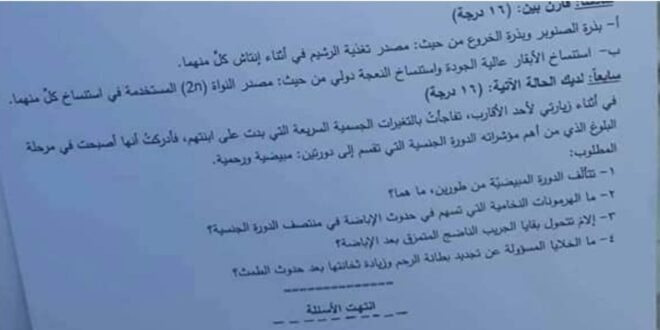 سادساً: قارن بين: (١٦ درجة)
أ- بذرة الصنوبر وبذرة الخروع من حيث: مصدر تغذية الرشيم في أثناء إنتاش كلٍّ منهما.
ب- استنساخ الأبقار عالية الجودة واستنساخ النعجة دولي من حيث: مصدر النواة (2n) المستخدمة في استنساخ كلٍّ منهما.
سابعاً: لديك الحالة الآتية: (١٦ درجة)
في أثناء زيارتي لأحد الأقارب، تفاجأتُ بالتغيرات الجسمية السريعة التي بدت على ابنتهم، فأدركتُ أنها أصبحت في مرحلة
البلوغ الذي من أهم مؤشراته الدورة الجنسية التي تقسم إلى دورتين: مبيضية ورحمية.
المطلوب:
١- تتألف الدورة المبيضيّة من طورين، ما هما؟
٢- ما الهرمونات النخامية التي تسهم في حدوث الإباضة في منتصف الدورة الجنسية؟
٣- إلامَ تتحول بقايا الجريب الناضج المتمزق بعد الإباضة؟
٤- ما الخلايا المسؤولة عن تجديد بطانة الرحم وزيادة ثخانتها بعد حدوث الطمث؟
انتهت الأسئلة